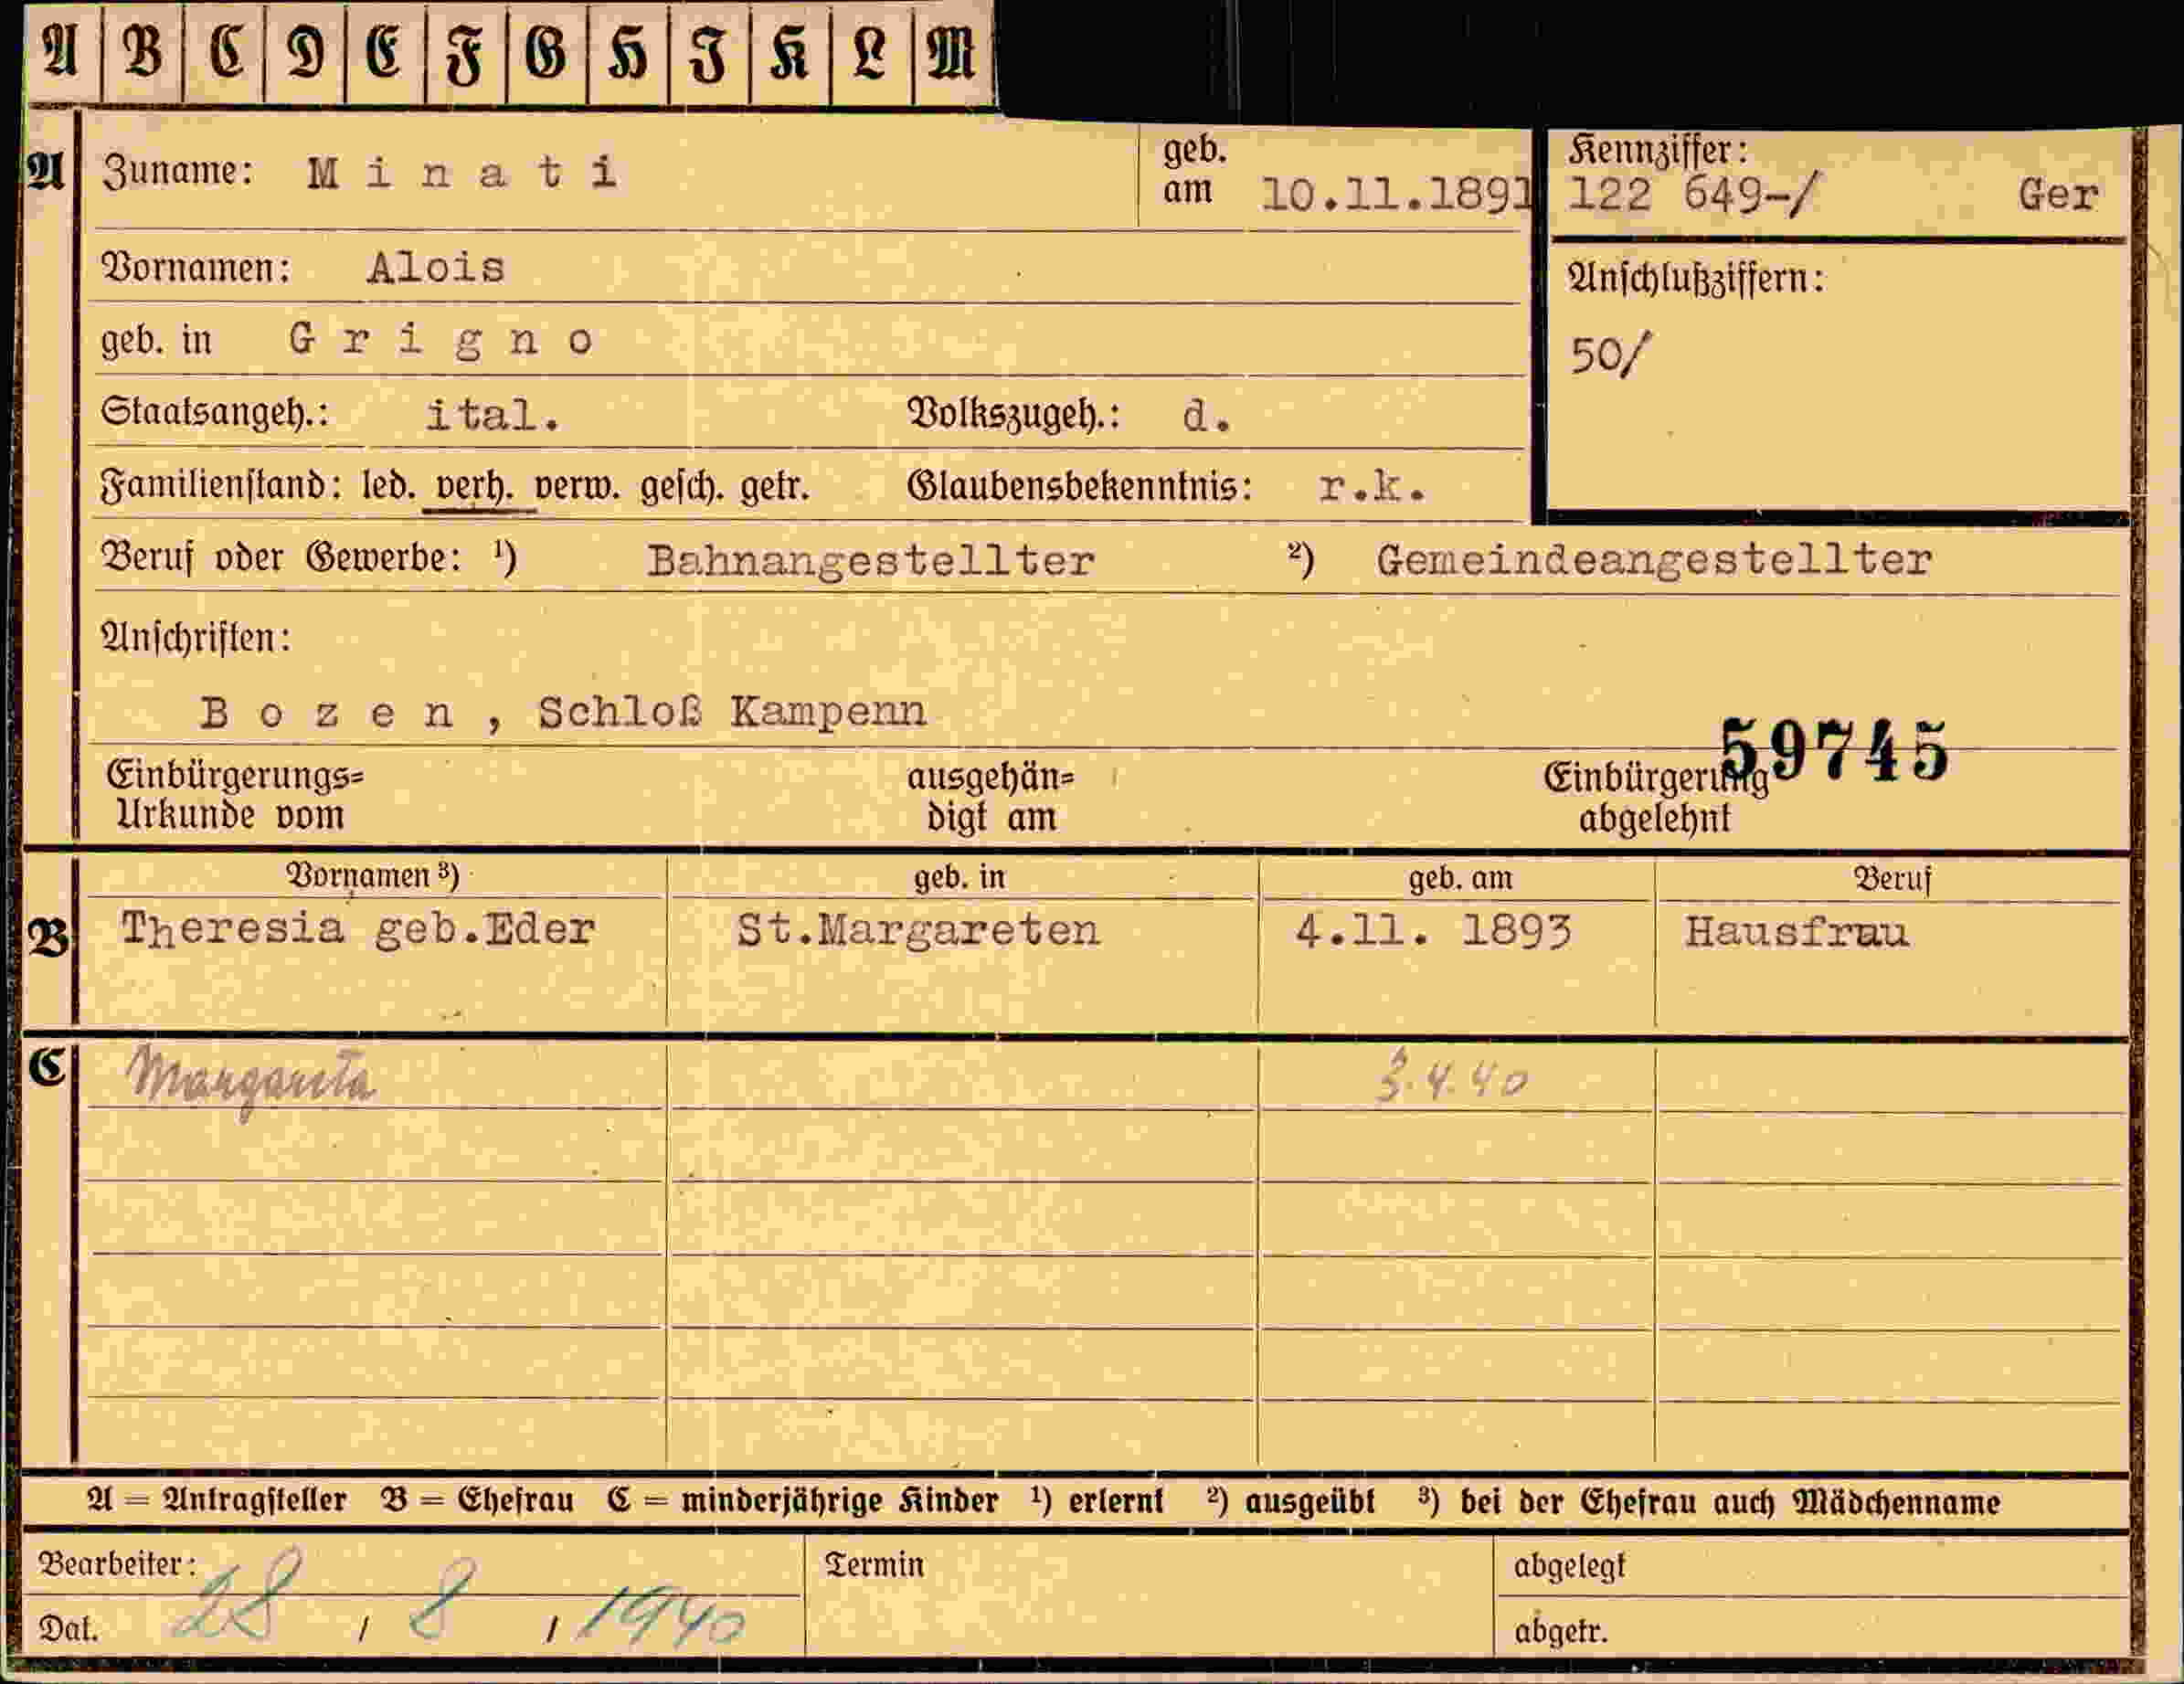 A B C D E F G H I K L M
A Zuname: M i n a t i geb. am 10.11.1891
Kennziffer:
122 649-/ Ger
Vornamen: Alois
Anschlußziffern:
50/
geb. in G r i g n o
Staatsangeh.: ital. Volkszugeh.: d.
Familienstand: led. verh. verw. gesch. getr. Glaubensbekenntnis: r.k.
Beruf oder Gewerbe: ¹) Bahnangestellter ²) Gemeindeangestellter
Anschriften:
B o z e n , Schloß Kampenn
59745
Einbürgerungs= ausgehän= Einbürgerung
Urkunde vom digt am abgelehnt
Vornamen ³) geb. in geb. am Beruf
B Theresia geb.Eder St.Margareten 4.11. 1893 Hausfrau
C Margarita 3.4.40
A = Antragsteller B = Ehefrau C = minderjährige Kinder ¹) erlernt ²) ausgeübt ³) bei der Ehefrau auch Mädchenname
Bearbeiter: Termin abgelegt
Dat. 28 / 8 / 1940 abgetr.